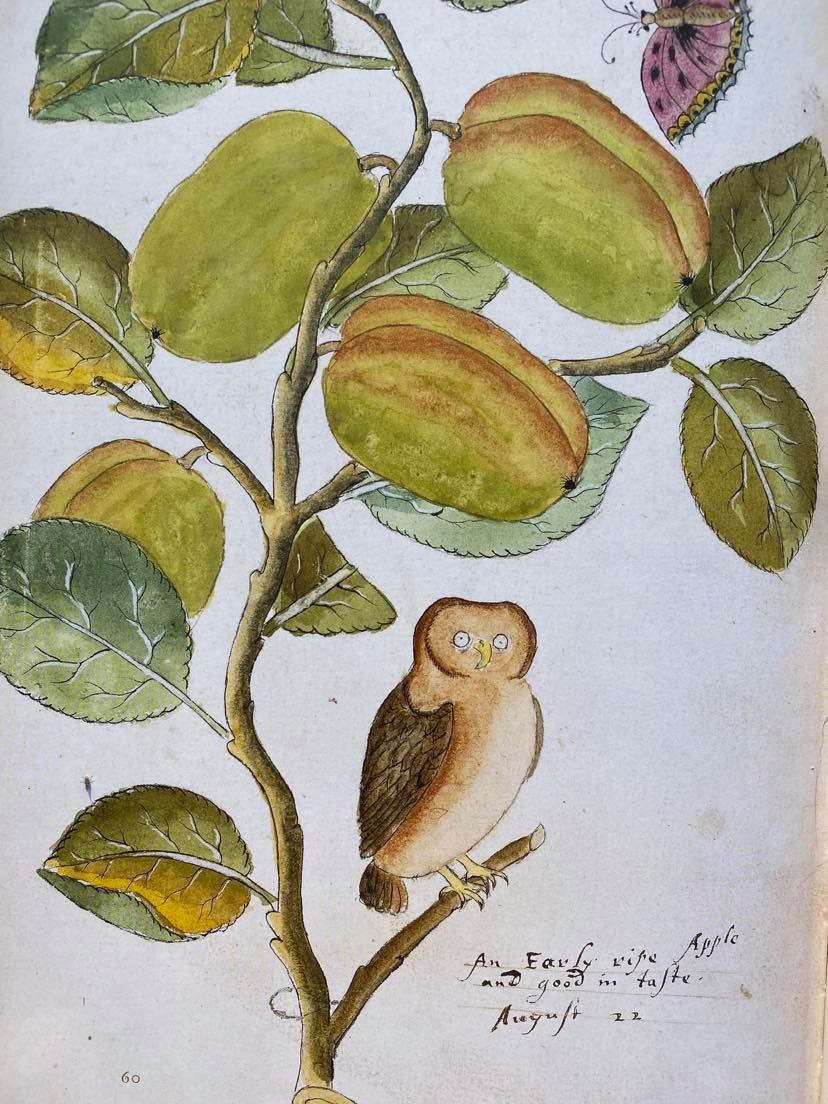 An Early ripe Apple
and good in taſte.
Auguſt 22
60